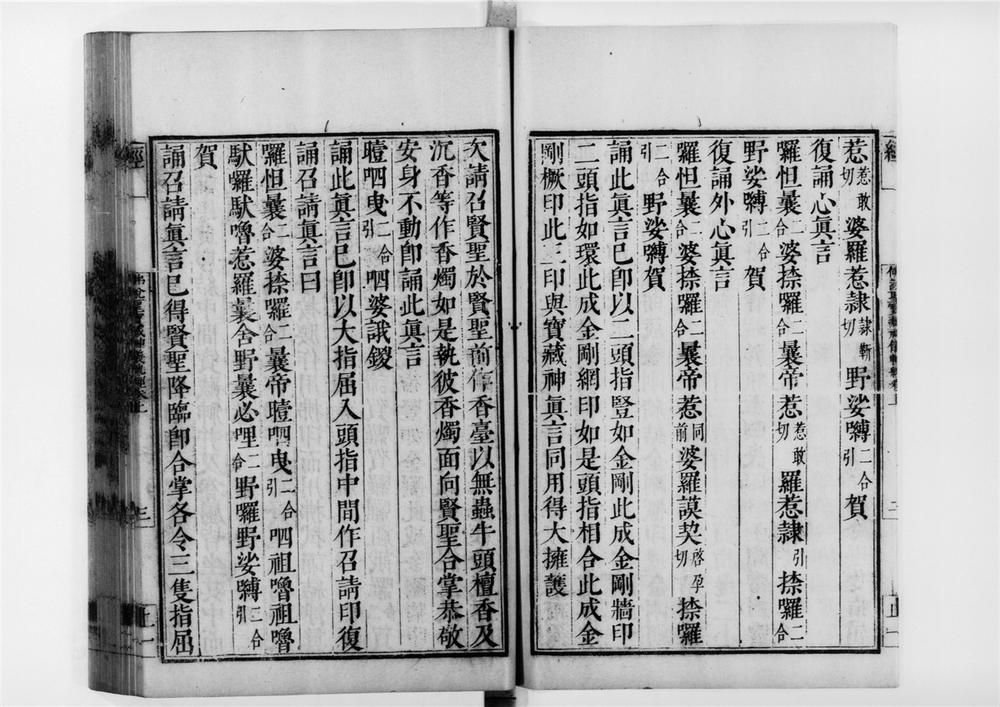 惹惹敢切婆羅惹隷隷斬切野娑嚩二合引賀
復誦心眞言
囉怛曩二合婆捺囉二合曩帝惹惹敢切羅惹隷引捺囉二合
野娑嚩二合引賀
復誦外心眞言
羅怛曩二合婆捺囉二合曩帝惹同前婆羅謨㓶啓孕切捺囉
二合引野娑嚩賀
誦此眞言已卽以二頭指豎如金剛此成金剛牆印
二頭指如環此成金剛網印如是頭指相合此成金
剛橛印此三印與寶藏神眞言同用得大擁護
次請召賢聖於賢聖前作香臺以無蟲牛頭檀香及
沉香等作香燭如是執彼香燭面向賢聖合掌恭敬
安身不動卽誦此眞言
曀呬曳二合引呬婆誐鑁
誦此眞言已卽以大指屈入頭指中間作召請印復
誦召請眞言曰
囉怛曩二合婆捺囉二合曩帝曀呬曳二合引呬祖嚕祖嚕
馱囉馱嚕惹羅曩舍野曩必哩二合野囉野娑嚩二合引
賀
誦召請眞言已得賢聖降臨卽合掌各令三隻指屈
經
三